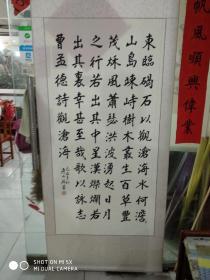 東臨碣石以觀滄海水何澹
山島竦峙樹木叢生百草豐
茂秋風蕭瑟洪波湧起日月
之行若出其中星漢燦爛若
出其裏幸甚至哉歌以詠志
曹孟德詩觀滄海
帆風順興